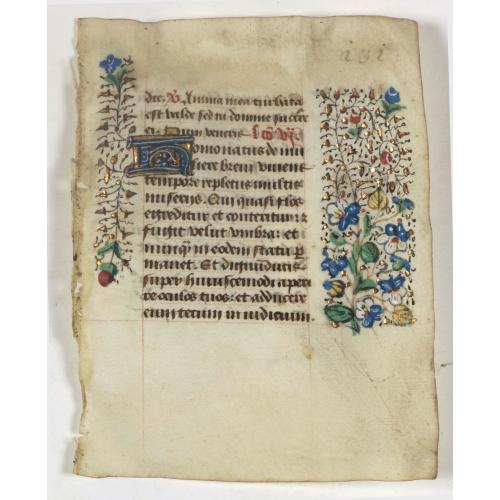 231
die. V. Anima mea turbata
est valde sed tu domine succurre
ei. Dum veneris Lco. VI.
Homo natus de mu
liere brevi vivens
tempore repletus multis
miserijs. Qui quasi flos
egreditur et conteritur: et
fugit velut umbra: et
nunqȝ in eodem statu p
manet. Et dignu ducis
super huiuscemodi aperi
re oculos tuos: et adducere
eum tecum in iudicium.